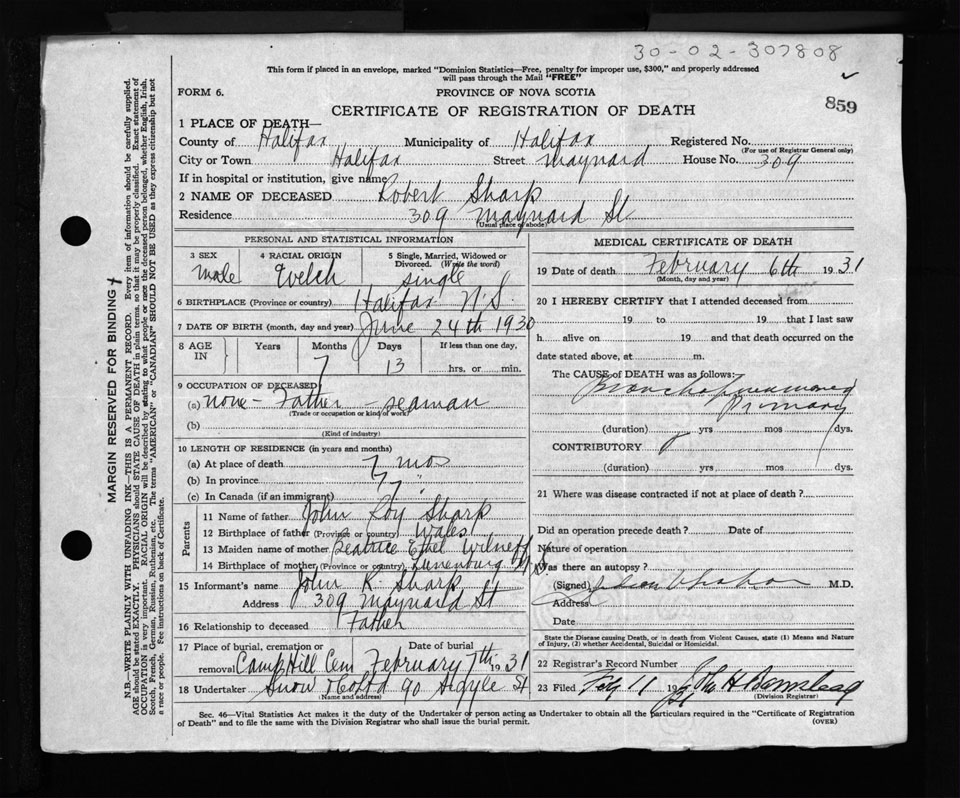 30-02-307808
This form if placed in an envelope, marked "Dominion Statistics—Free, penalty for improper use, $300," and properly addressed
will pass through the Mail "FREE"
FORM 6.
PROVINCE OF NOVA SCOTIA
859
CERTIFICATE OF REGISTRATION OF DEATH
1 PLACE OF DEATH—
County of Halifax Municipality of Halifax Registered No.
(For use of Registrar General only)
City or Town Halifax Street Maynard House No. 309
If in hospital or institution, give name
2 NAME OF DECEASED Robert Sharp
Residence 309 Maynard St
(Usual place of abode)
PERSONAL AND STATISTICAL INFORMATION
3 SEX Male
4 RACIAL ORIGIN Welch
5 Single, Married, Widowed or
Divorced. (Write the word)
single
6 BIRTHPLACE (Province or country) Halifax N.S.
7 DATE OF BIRTH (month, day and year) June 24th 1930
8 AGE IN Years Months Days If less than one day,
7 13 hrs. or min.
9 OCCUPATION OF DECEASED
(a) none - Father - seaman
(Trade or occupation or kind of work)
(b)
(Kind of industry)
10 LENGTH OF RESIDENCE (in years and months)
(a) At place of death 7 mos
(b) In province 7 "
(c) In Canada (if an immigrant)
Parents
11 Name of father John Roy Sharp
12 Birthplace of father (Province or country) Wales
13 Maiden name of mother Beatrice Ethel
14 Birthplace of mother (Province or country) Lunenburg N.S.
15 Informant's name John R. Sharp
Address 309 Maynard St
16 Relationship to deceased Father
17 Place of burial, cremation or Date of burial
removal Camp Hill Cem February 7th 1931
18 Undertaker Snow & Co Ltd 90 Argyle St
(Name and address)
MEDICAL CERTIFICATE OF DEATH
19 Date of death February 6th 1931
(Month, day and year)
20 I HEREBY CERTIFY that I attended deceased from
19 to 19 that I last saw
h alive on 19 and that death occurred on the
date stated above, at m.
The CAUSE of DEATH was as follows:
Broncho pneumonia
Primary
(duration) yrs mos dys.
CONTRIBUTORY
(duration) yrs mos dys.
21 Where was disease contracted if not at place of death?
Did an operation precede death? Date of
Nature of operation
Was there an autopsy?
(Signed) M.D.
Address
Date
State the Disease causing Death, or in death from Violent Causes, state (1) Means and Nature
of Injury, (2) whether Accidental, Suicidal or Homicidal.
22 Registrar's Record Number
23 Filed Feby 11 19
(Division Registrar)
Sec. 46—Vital Statistics Act makes it the duty of the Undertaker or person acting as Undertaker to obtain all the particulars required in the "Certificate of Registration
of Death" and to file the same with the Division Registrar who shall issue the burial permit.
(OVER)
MARGIN RESERVED FOR BINDING
N.B.—WRITE PLAINLY WITH UNFADING INK—THIS IS A PERMANENT RECORD. Every item of information should be carefully supplied.
AGE should be stated EXACTLY. PHYSICIANS should STATE CAUSE OF DEATH in plain terms, so that it may be properly classified. Exact statement of
OCCUPATION is very important. RACIAL ORIGIN will be described by stating to what people or race the deceased person belonged, whether English, Irish,
Scotch, French, German, Russian, Ruthenian, etc. The terms "AMERICAN" or "CANADIAN" SHOULD NOT BE USED as they express citizenship but not
a race or people. Fee instructions on back of Certificate.